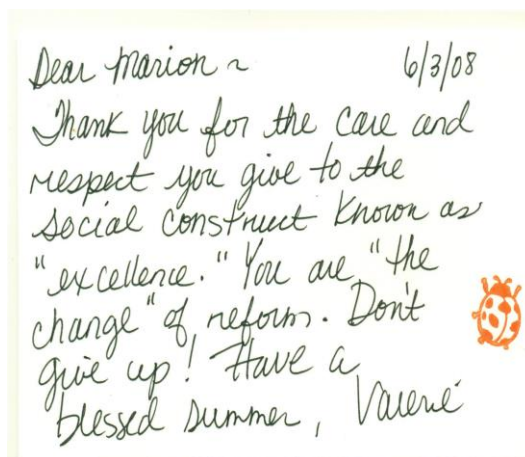 Dear Marion ~ 6/3/08
Thank you for the care and
respect you give to the
social construct known as
"excellence." You are "the
change" of reform. Don't
give up! Have a
blessed summer, Valerie